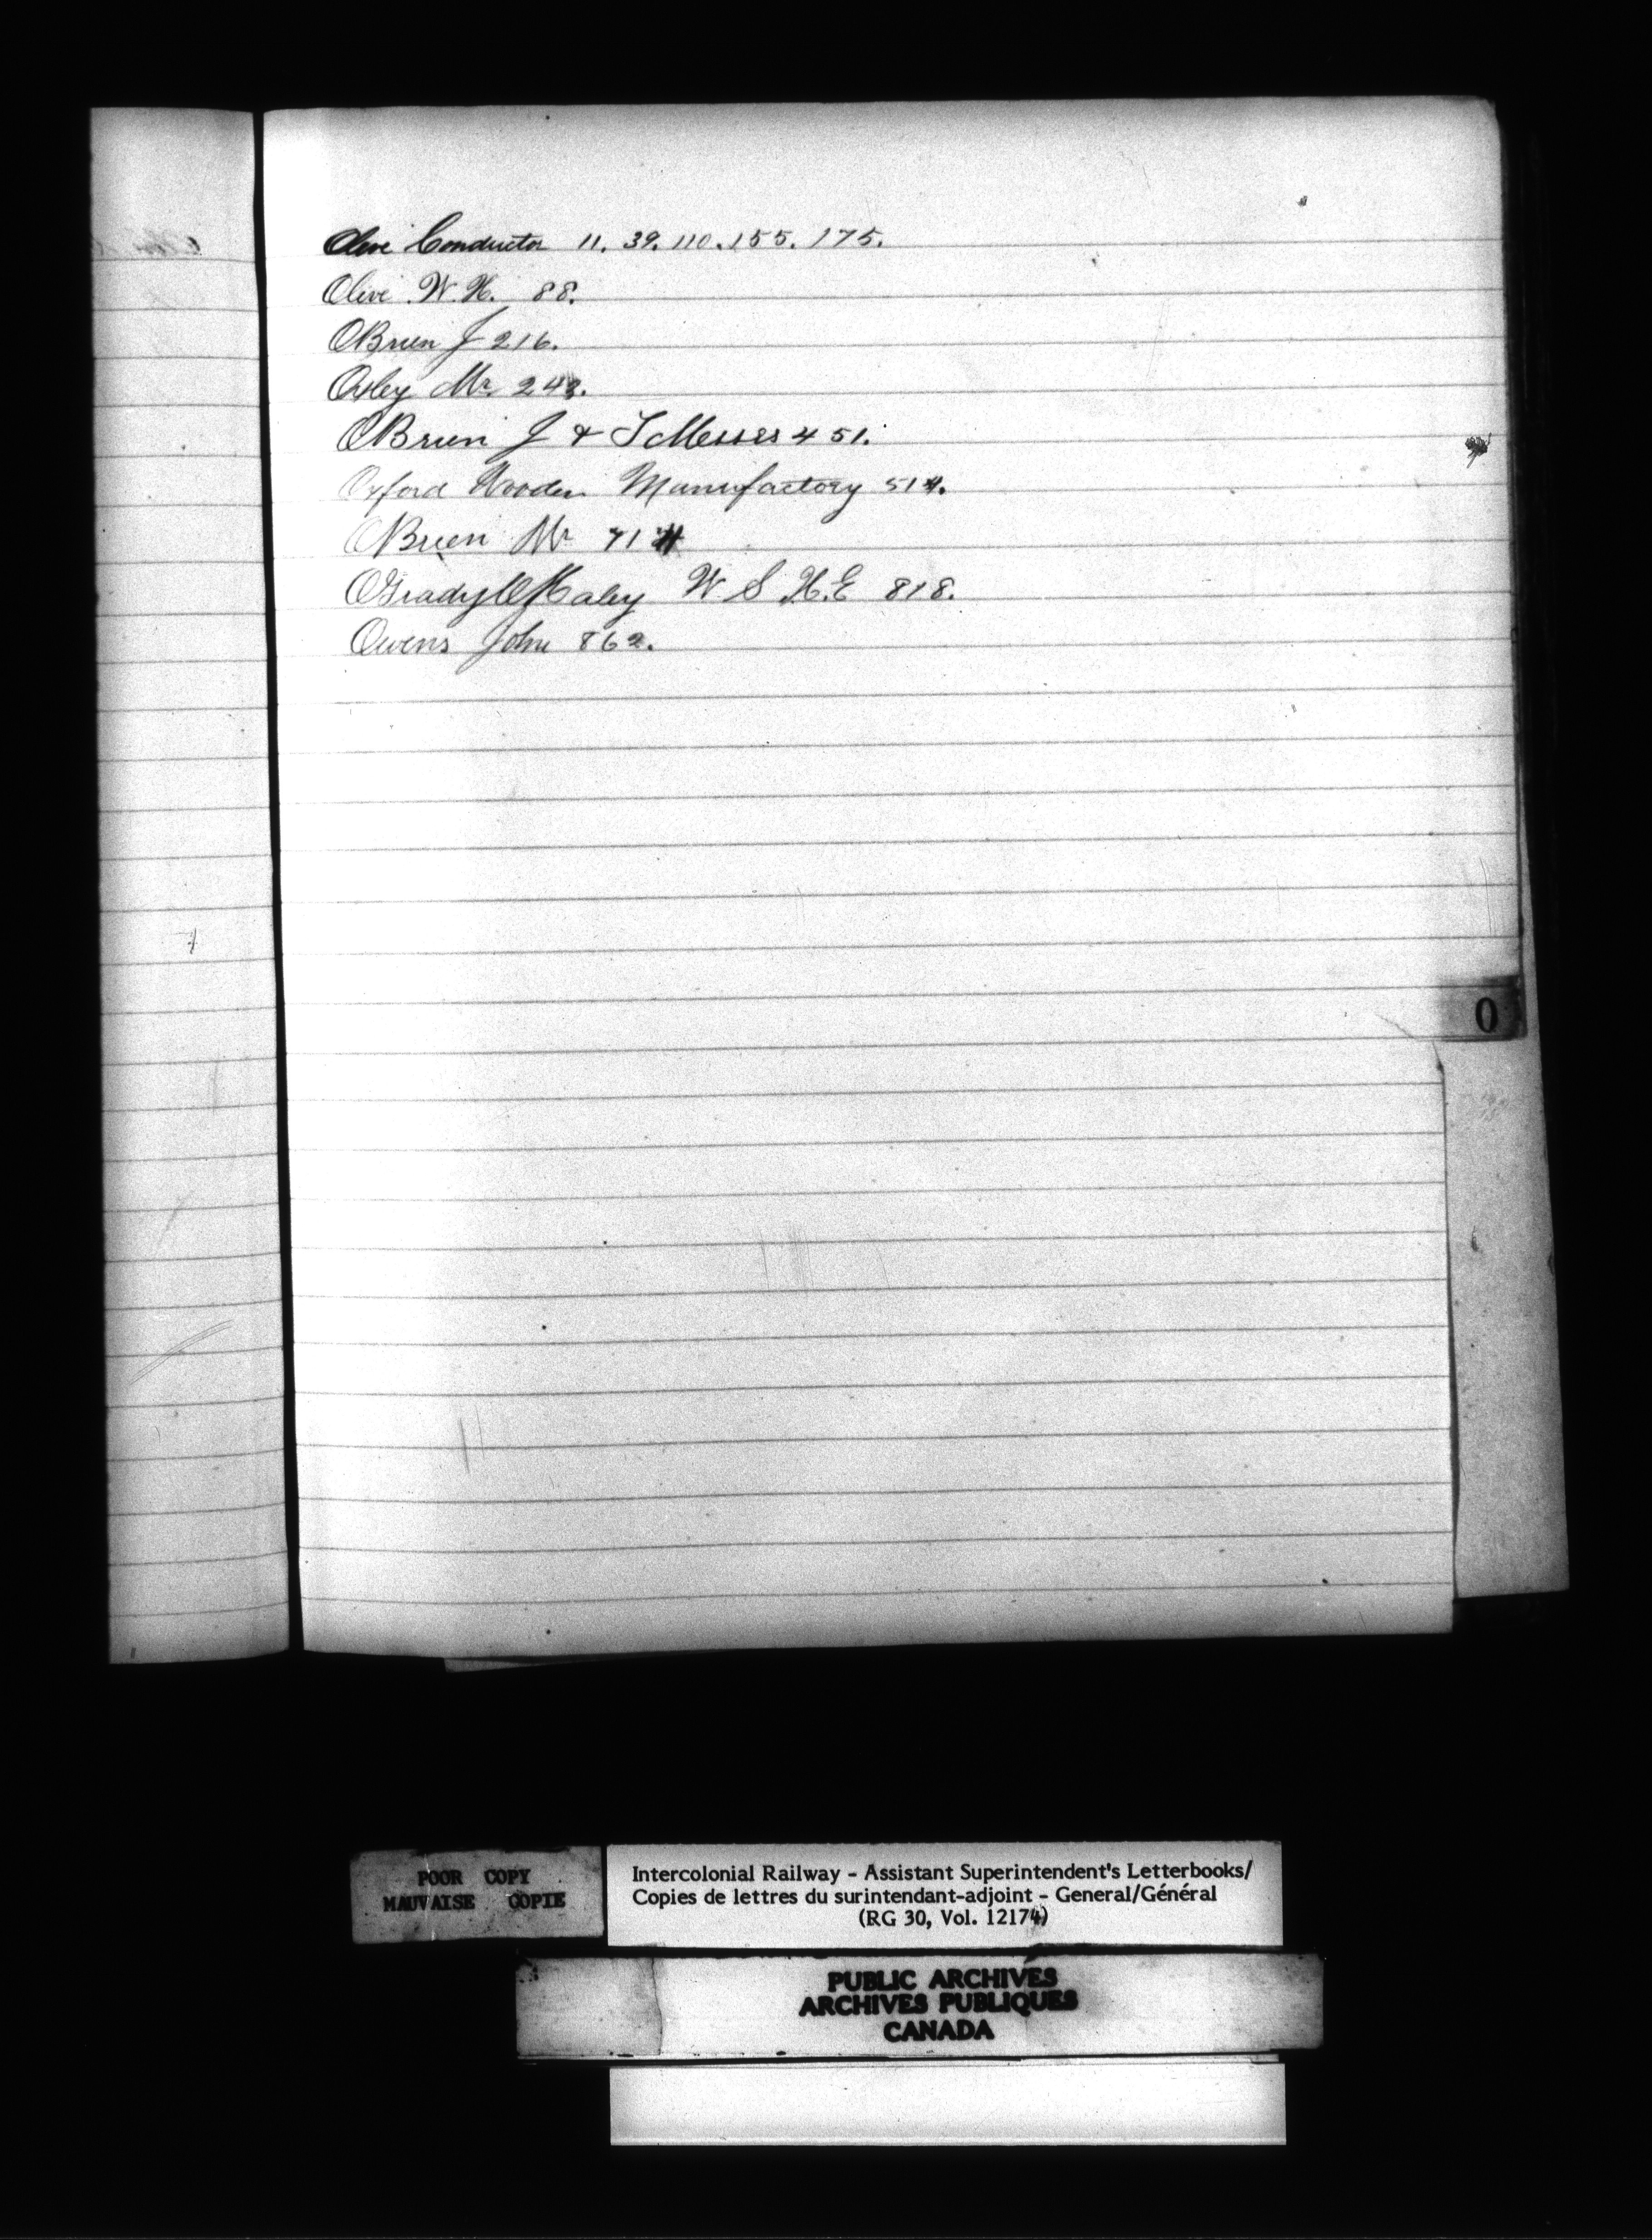 Olive Conductor 11. 39. 110. 155. 175.
Olive W. H. 88.
OBrien J 216.
Oxley Mr 243.
OBrien J & T Messrs 451.
Oxford Wooden Manufactory 514.
OBrien Mr 714
OGrady W S H. E 818.
Owens John 862.
O
POOR COPY
MAUVAISE COPIE
Intercolonial Railway - Assistant Superintendent's Letterbooks/
Copies de lettres du surintendant-adjoint - General/Général
(RG 30, Vol. 12174)
PUBLIC ARCHIVES
ARCHIVES PUBLIQUES
CANADA